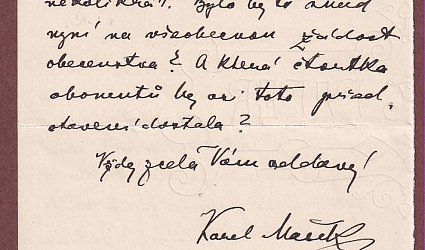 několikrát. Bylo by to snad
nyní na všeobecnou žádost
obecenstva? A která čtvrtka
abonentů by asi toto před,
stavení dostala?
Vždy zcela Vám oddaný!
Karel